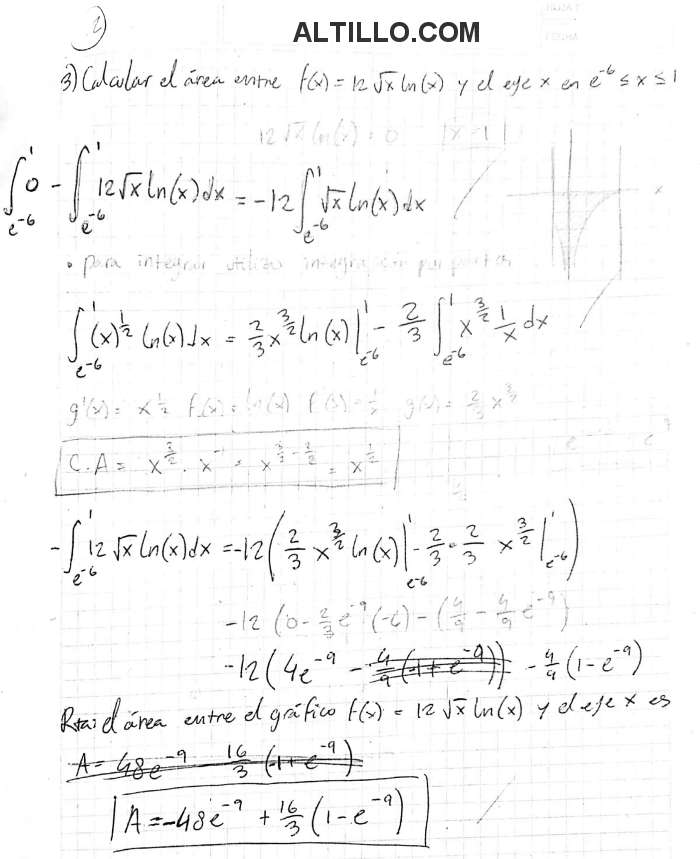 2
ALTILLO.COM
3) Calcular el área entre f(x) = 12 √x ln(x) y el eje x en e^-6 ≤ x ≤ 1
12 √x ln(x) = 0 |x = 1|
∫_{e^-6}^{1} 0 - ∫_{e^-6}^{1} 12√x ln(x) dx = -12 ∫_{e^-6}^{1} √x ln(x) dx
x
• para integrar utilizo integración por partes
∫_{e^-6}^{1} (x)^{1/2} ln(x) dx = 2/3 x^{3/2} ln(x) |_{e^-6}^{1} - 2/3 ∫_{e^-6}^{1} x^{3/2} 1/x dx
g'(x) = x^{1/2} f(x) = ln(x) f'(x) = 1/x g(x) = 2/3 x^{3/2}
C.A = x^{3/2} . x^{-1} = x^{3/2 - 2/2} = x^{1/2}
-∫_{e^-6}^{1} 12 √x ln(x) dx = -12 ( 2/3 x^{3/2} ln(x) |_{e^-6}^{1} - 2/3 · 2/3 x^{3/2} |_{e^-6}^{1} )
-12 (0 - 2/3 e^-9 (-6) - (4/9 - 4/9 e^-9)
-12 ( 4e^-9 - 4/9 (-1 + e^-9)) - 4/9 (1 - e^-9)
Rta: el área entre el gráfico f(x) = 12 √x ln(x) y el eje x es
A = 48e^-9 16/3 (-1 + e^-9)
A = -48e^-9 + 16/3 (1 - e^-9)